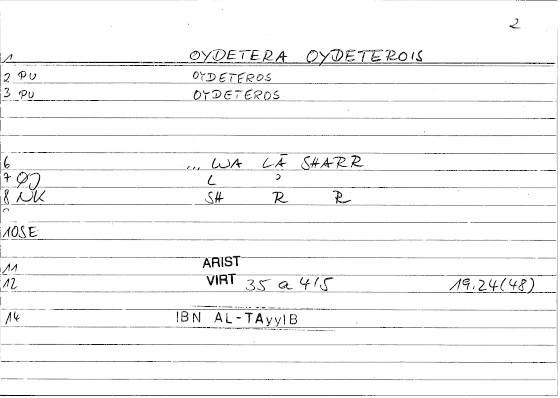 2
1 OYDETERA OYDETEROIS
2 PU OYDETEROS
3 PU OYDETEROS
6 ... WA LĀ SHARR
7 L ʾ
8 NK SH R R
10 SE
11 ARIST
12 VIRT 35 a 4/5 19.24(48)
14 IBN AL-TAyyIB